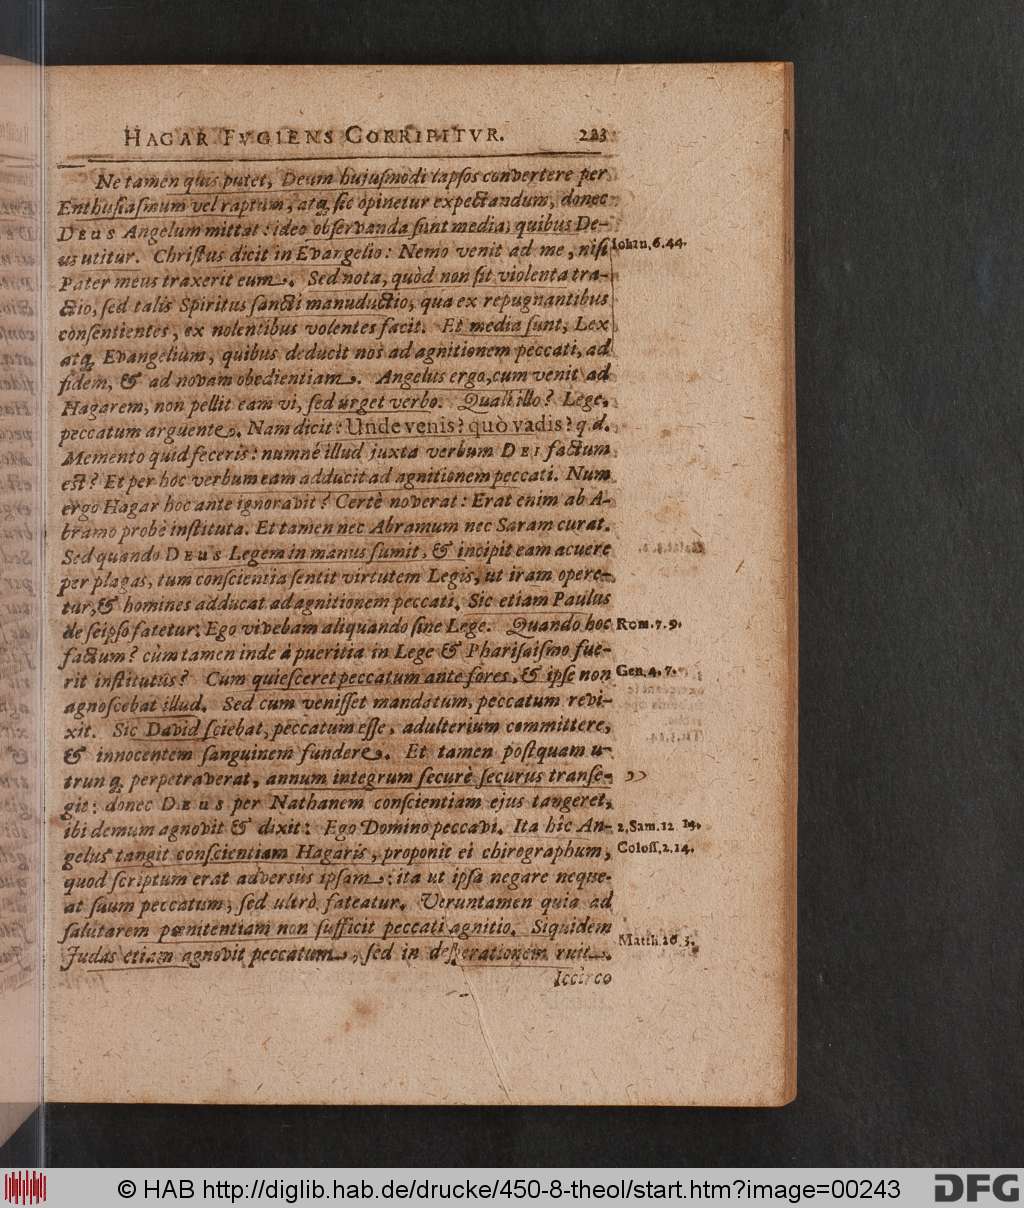 HAGAR FVGIENS CORRIPITVR. 223
Ne tamen quis putet, Deum hujusmodi lapsos convertere per
Enthusiasmum vel raptum, atq; sic opinetur expectandum, donec
DEUS Angelum mittat: ideo observanda sunt media, quibus De-
us utitur. Christus dicit in Evangelio: Nemo venit ad me, nisi
Iohan. 6. 44.
Pater meus traxerit eum. Sed nota, quòd non sit violenta tra-
ctio, sed talis Spiritus sancti manuductio, qua ex repugnantibus
consentientes, ex nolentibus volentes facit. Et media sunt, Lex
atq; Evangelium, quibus deducit nos ad agnitionem peccati, ad
fidem, & ad novam obedientiam. Angelus ergo, cum venit ad
Hagarem, non pellit eam vi, sed urget verbo. Quali illo? Lege,
peccatum arguente. Nam dicit: Unde venis? quò vadis? q.d.
Memento quid feceris: numné illud juxta verbum DEI factum
est? Et per hoc verbum eam adducit ad agnitionem peccati. Num
ergo Hagar hoc ante ignoravit? Certè noverat: Erat enim ab A-
bramo probè instituta. Et tamen nec Abramum nec Saram curat.
Sed quando DEUS Legem in manus sumit, & incipit eam acuere
per plagas, tum conscientia sentit virtutem Legis, ut iram opere-
tur, & homines adducat ad agnitionem peccati. Sic etiam Paulus
de seipso fatetur: Ego vivebam aliquando sine Lege. Quando hoc
Rom. 7. 9.
factum? cùm tamen inde à pueritia in Lege & Pharisaismo fue-
rit institutus? Cum quiesceret peccatum ante fores, & ipse non
Gen. 4. 7.
agnoscebat illud. Sed cum venisset mandatum, peccatum revi-
xit. Sic David sciebat, peccatum esse, adulterium committere,
& innocentem sanguinem fundere. Et tamen postquam u-
trunq; perpetraverat, annum integrum securè securus transe-
git: donec DEUS per Nathanem conscientiam ejus tangeret,
ibi demum agnovit & dixit: Ego Domino peccavi. Ita hîc An-
2. Sam. 12 13.
gelus tangit conscientiam Hagaris, proponit ei chirographum,
Coloss. 2. 14.
quod scriptum erat adversùs ipsam: ita ut ipsa negare neque-
at suum peccatum, sed ultrò fateatur. Veruntamen quia ad
salutarem pœnitentiam non sufficit peccati agnitio. Siquidem
Judas etiam agnovit peccatum, sed in desperationem ruit.
Matth. 26. 3.
Iccirco
© HAB http://diglib.hab.de/drucke/450-8-theol/start.htm?image=00243
DFG